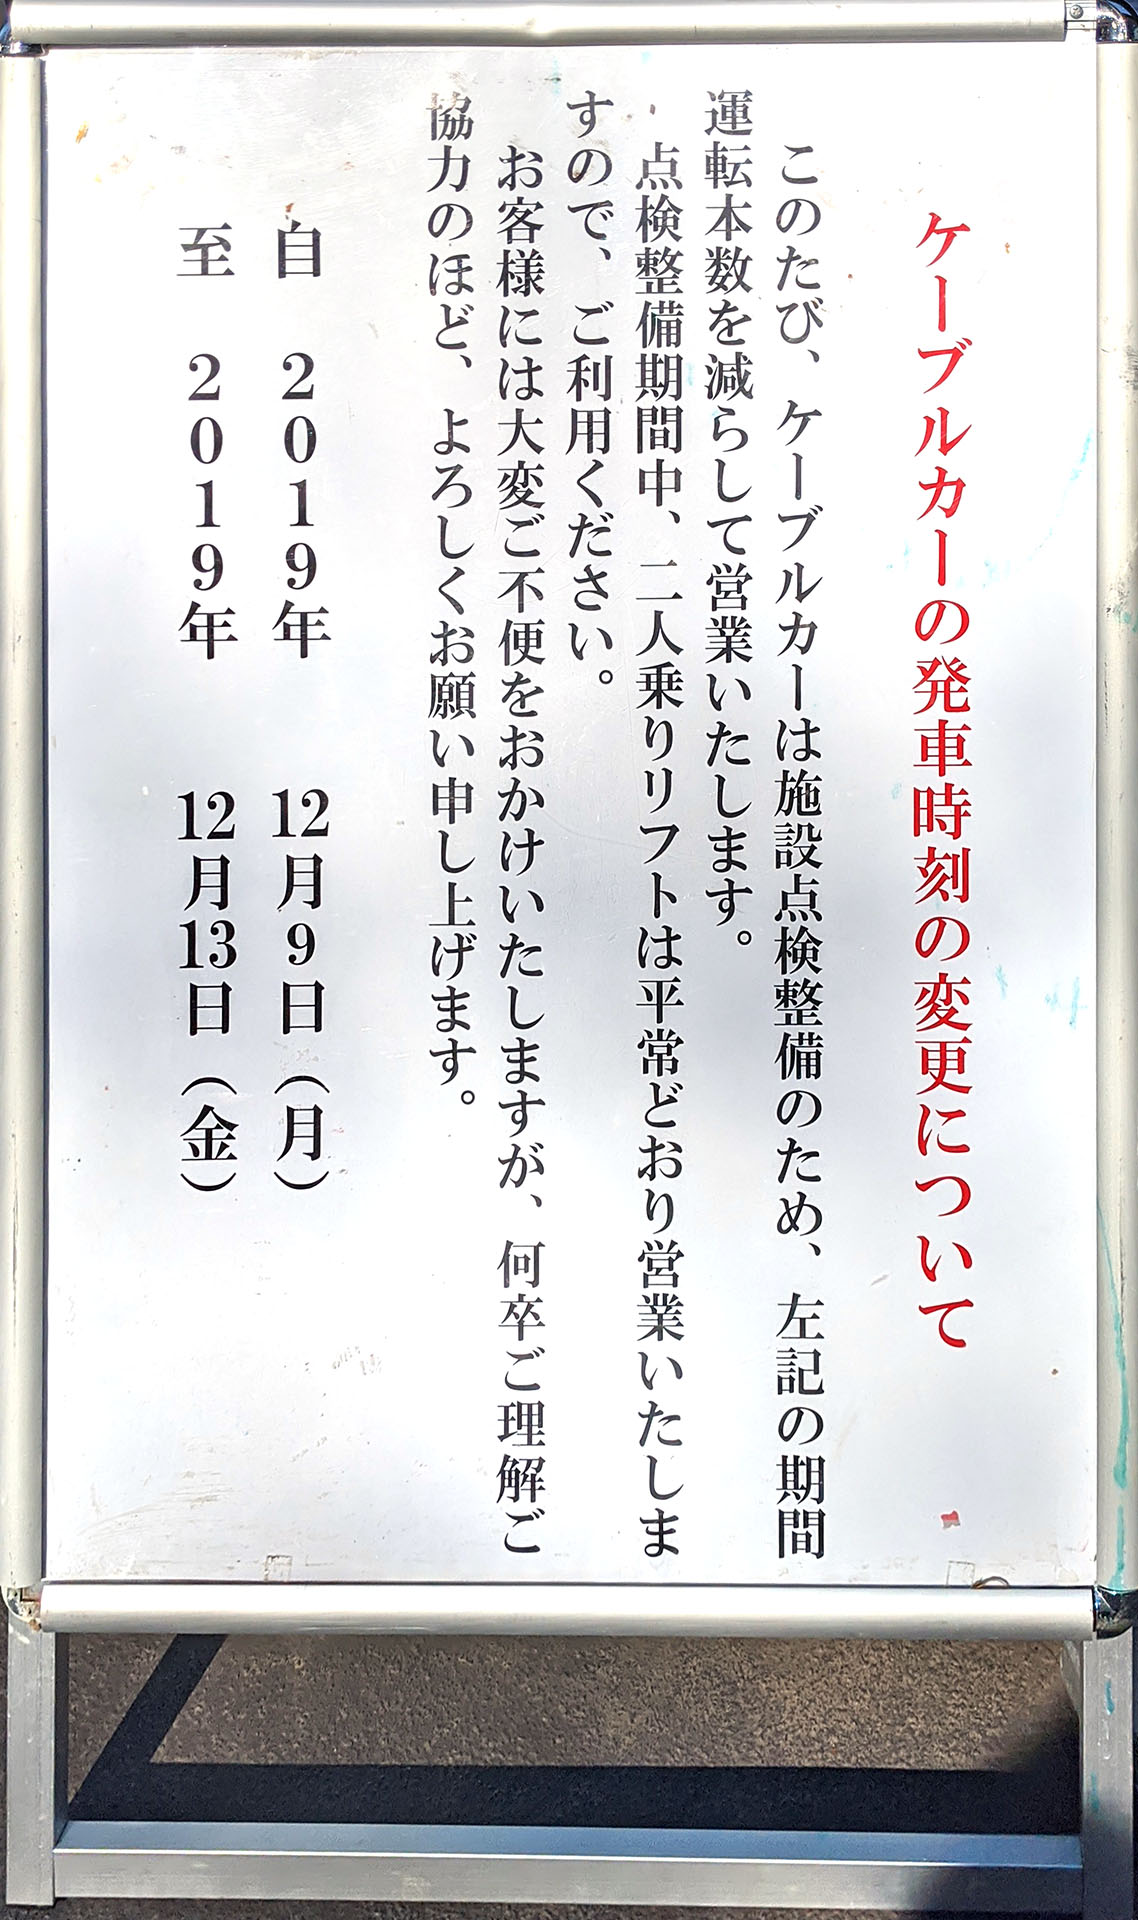 ケーブルカーの発車時刻の変更について
このたび、ケーブルカーは施設点検整備のため、左記の期間
運転本数を減らして営業いたします。
点検整備期間中、二人乗りリフトは平常どおり営業いたしま
すので、ご利用ください。
お客様には大変ご不便をおかけいたしますが、何卒ご理解ご
協力のほど、よろしくお願い申し上げます。
自 2019年 12月9日（月）
至 2019年 12月13日（金）